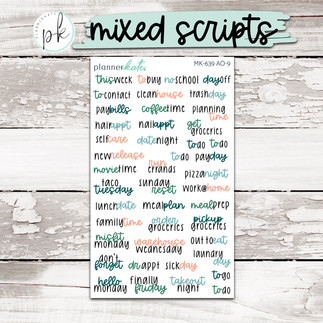 pk
mixed scripts
plannerkate
MK-639 AO-9
thisweek tobuy noschool dayoff
tocontact cleanhouse trashday
paybills coffeetime planning time
hairappt nailappt get groceries
selfcare datenight todo todo
newrelease run errands todo payday
movietime pizzanight
taco tuesday sunday reset work@home
lunchdate mealplan mealprep
familytime order groceries pickup groceries
misfit monday warehouse wednesday outtoeat
laundry day
don't forget drappt sickday togo
hello monday finally friday takeout night todo togo